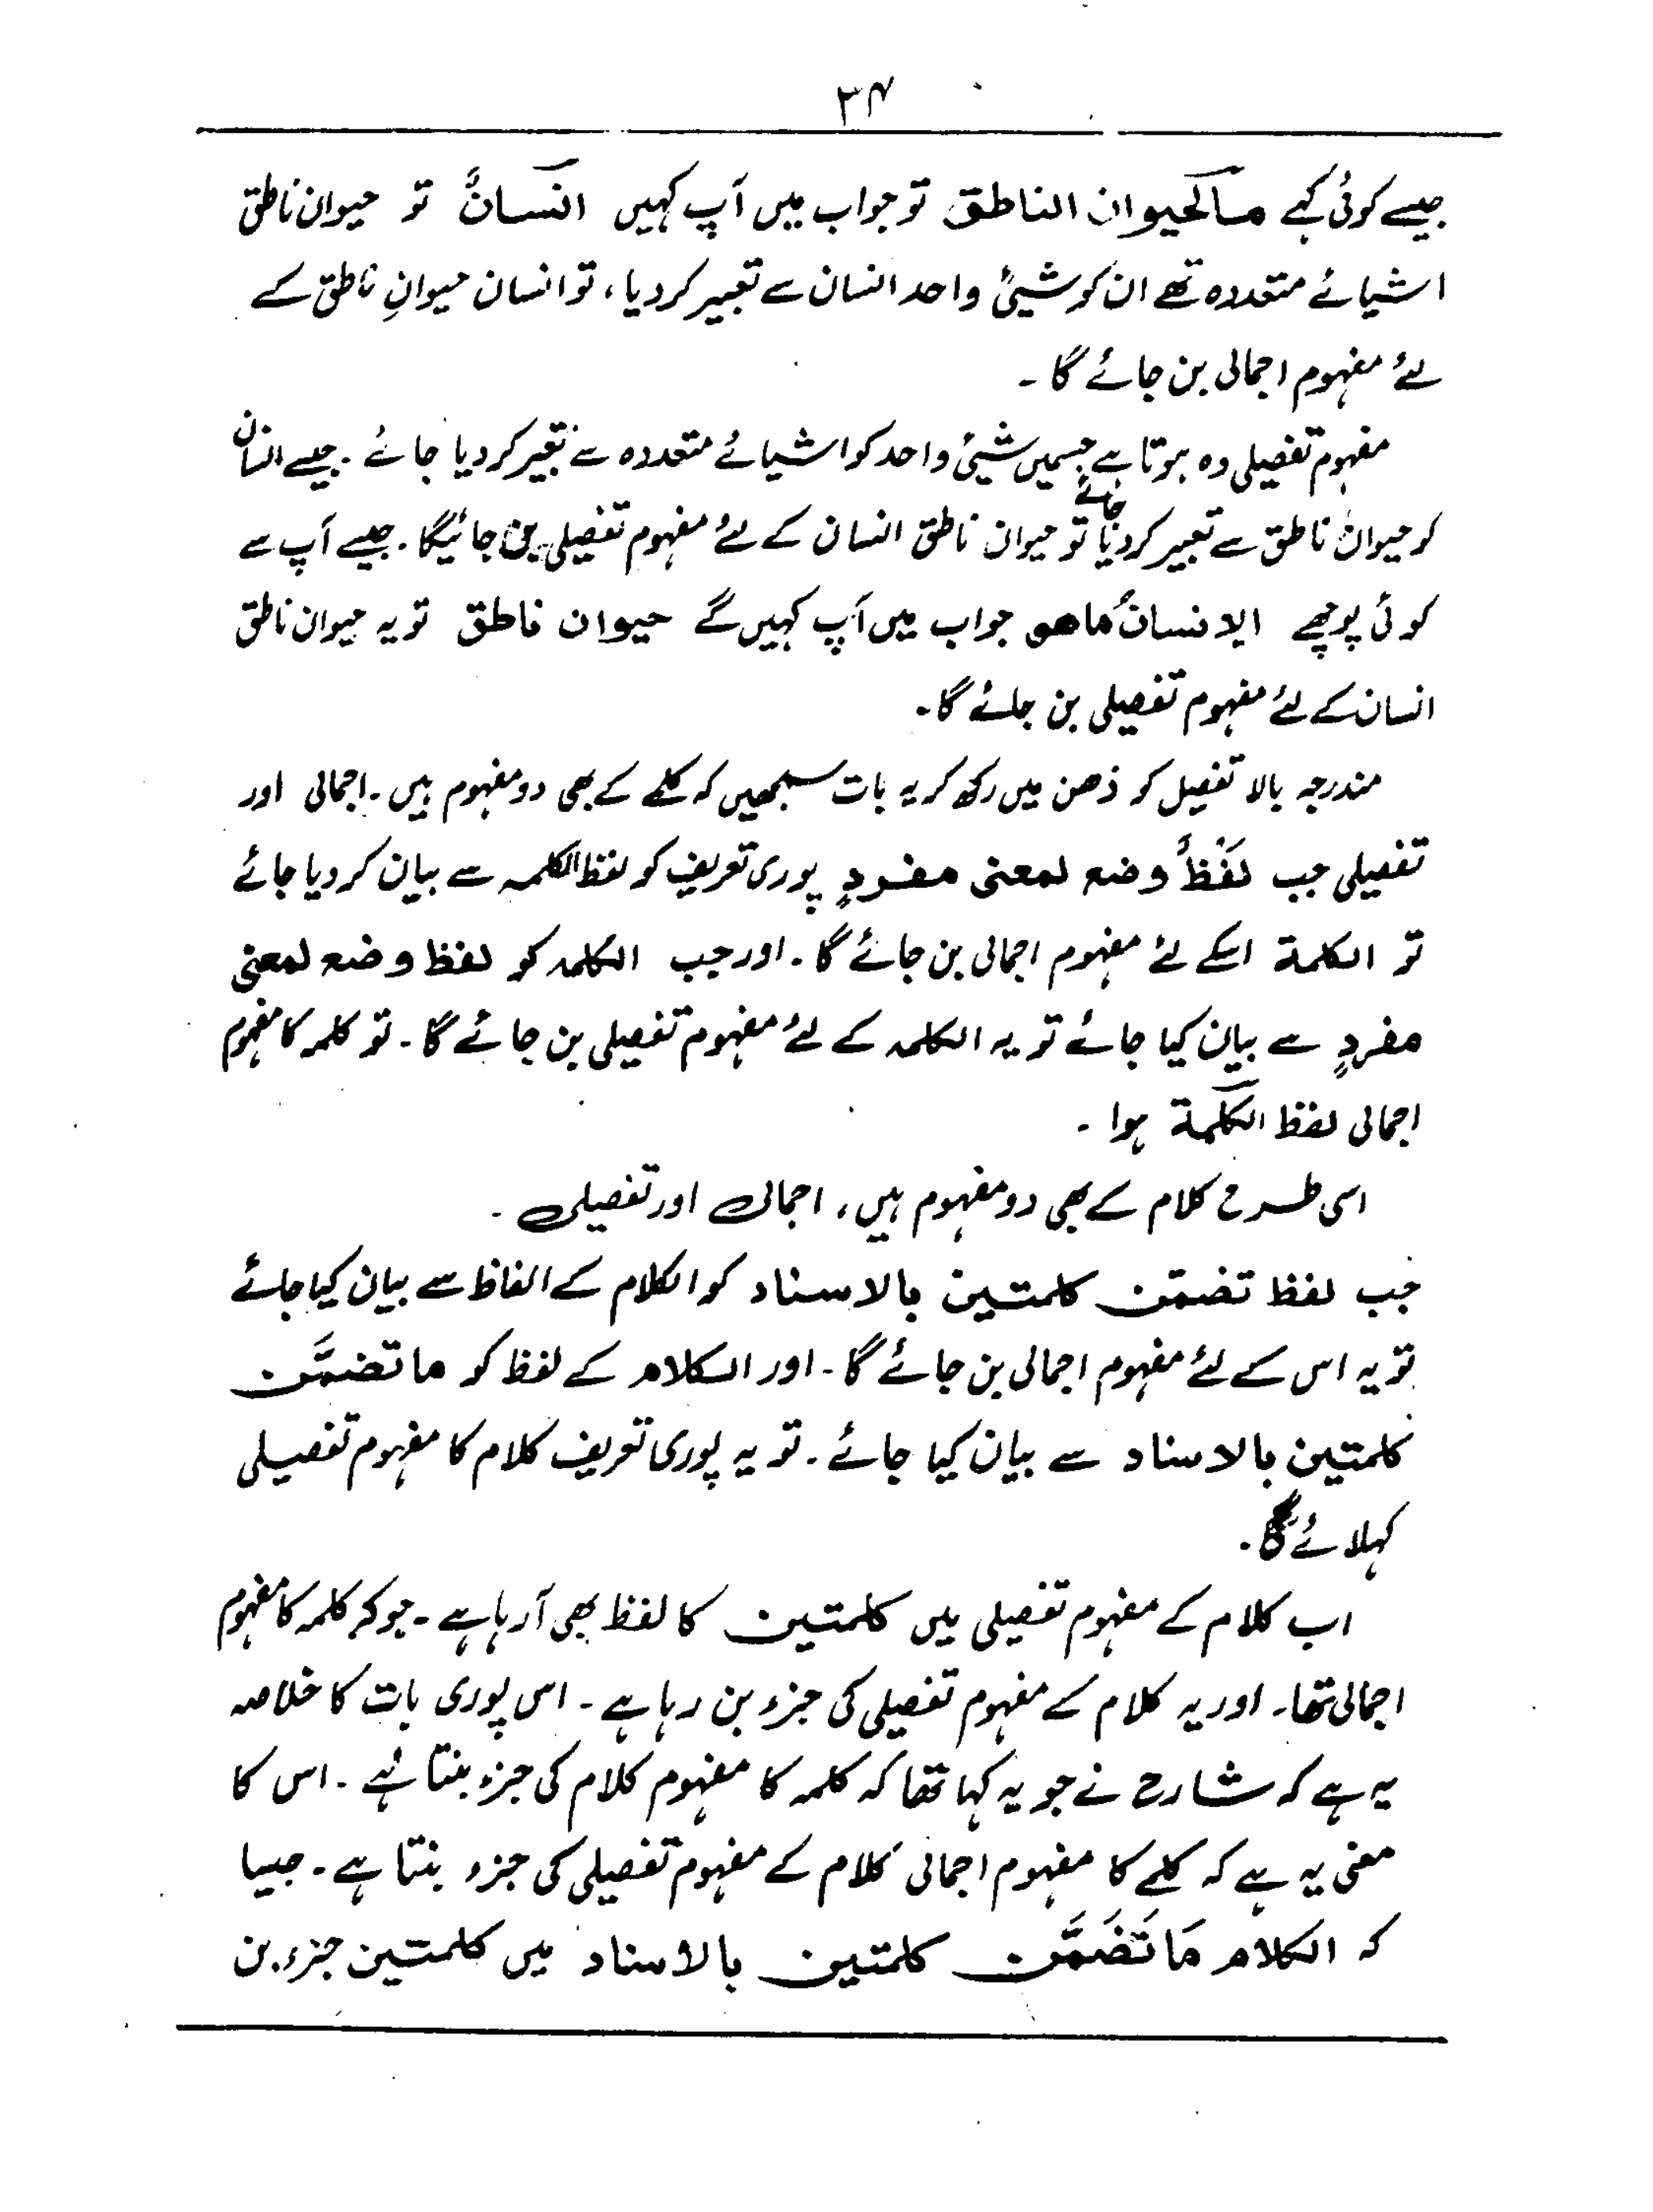 ۳۴
جیسے کوئی کہے مالحیوان الناطق تو جواب میں آپ کہیں انسانٌ تو حیوان ناطق
اشیائے متعددہ تھے ان کو شیئ واحد انسان سے تعبیر کردیا، تو انسان حیوانِ ناطق کے
لئے مفہوم اجمالی بن جائے گا ۔
مفہوم تفصیلی وہ ہوتا ہے جسمیں شیئ واحد کو اشیائے متعددہ سے تعبیر کردیا جائے ۔ جیسے انسان
کو حیوان ناطق سے تعبیر کردیا جائے تو حیوان ناطق انسان کے لئے مفہوم تفصیلی بن جائیگا ۔ جیسے آپ سے
کوئی پوچھے الانسانُ ماھو جواب میں آپ کہیں گے حیوان ناطق تو یہ حیوان ناطق
انسان کے لئے مفہوم تفصیلی بن جائے گا ۔
مندرجہ بالا تفصیل کو ذھن میں رکھ کر یہ بات سمجھیں کہ کلمے کے بھی دو مفہوم ہیں ۔ اجمالی اور
تفصیلی جب لَفْظٌ وضع لمعنی مفردٍ پوری تعریف کو لفظ الکلمہ سے بیان کردیا جائے
تو الکلمة اسکے لئے مفہوم اجمالی بن جائے گا ۔ اور جب الکلمہ کو لفظ وضع لمعنی
مفردٍ سے بیان کیا جائے تو یہ الکلمہ کے لئے مفہوم تفصیلی بن جائے گا ۔ تو کلمہ کا مفہوم
اجمالی لفظ الکلمة ہوا ۔
اسی طرح کلام کے بھی دو مفہوم ہیں، اجمالی اور تفصیلی ۔
جب لفظ تضمّن کلمتین بالاسناد کو الکلام کے الفاظ سے بیان کیا جائے
تو یہ اس کے لئے مفہوم اجمالی بن جائے گا ۔ اور الکلام کے لفظ کو ما تضمَّن
کلمتین بالاسناد سے بیان کیا جائے ۔ تو یہ پوری تعریف کلام کا مفہوم تفصیلی
کہلائے گا ۔
اب کلام کے مفہوم تفصیلی میں کلمتین کا لفظ بھی آرہا ہے ۔ جو کہ کلمہ کا مفہوم
اجمالی تھا ۔ اور یہ کلام کے مفہوم تفصیلی کی جزء بن رہا ہے ۔ اس پوری بات کا خلاصہ
یہ ہے کہ شارح نے جو یہ کہا تھا کہ کلمہ کا مفہوم کلام کی جزء بنتا ہے ۔ اس کا
معنی یہ ہے کہ کلمے کا مفہوم اجمالی کلام کے مفہوم تفصیلی کی جزء بنتا ہے ۔ جیسا
کہ الکلام مَا تَضَمَّن کلمتین بالاسناد میں کلمتین جزء بن